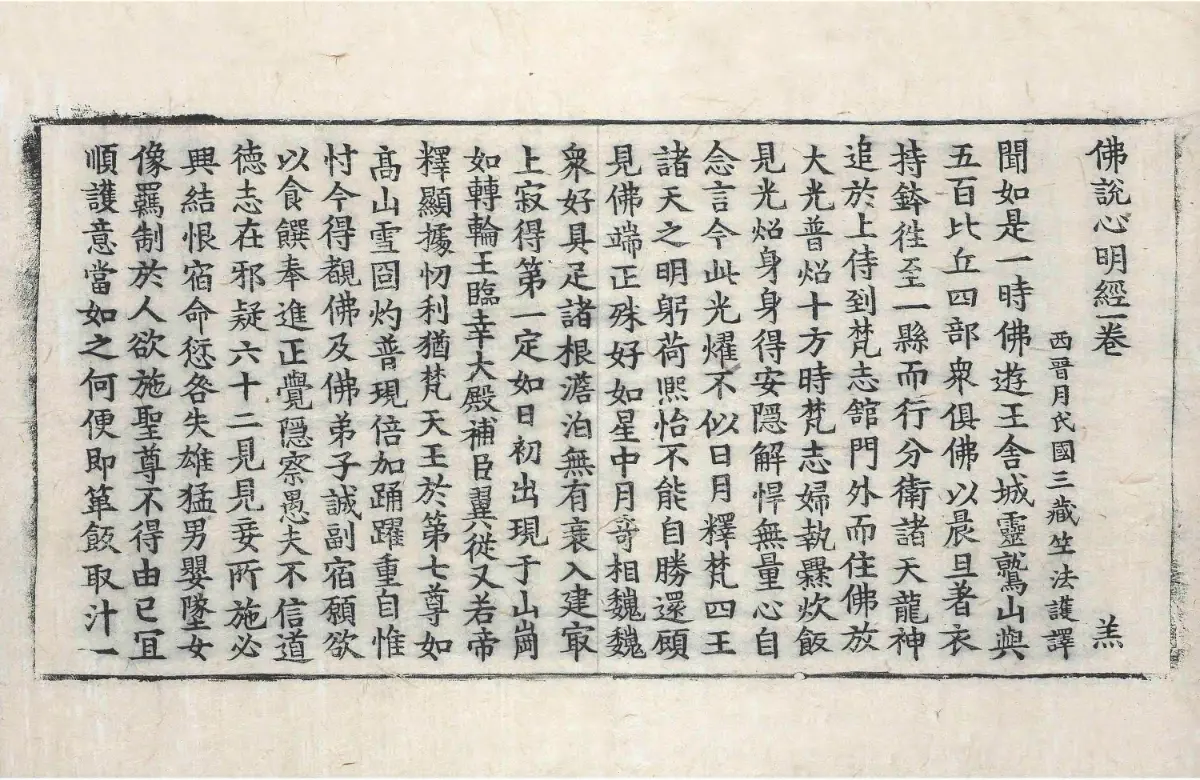 佛說心明經一卷 羔
西晉月氏國三藏竺法護譯
聞如是一時佛遊王舍城靈鷲山與
五百比丘四部衆俱佛以晨旦著衣
持鉢徃至一縣而行分衛諸天龍神
追於上侍到梵志舘門外而住佛放
大光普炤十方時梵志婦執爨炊飯
見光炤身身得安隱解悍無量心自
念言今此光燿不似日月釋梵四王
諸天之明躬荷熈怡不能自勝還顧
見佛端正殊好如星中月竒相魏魏
衆好具足諸根澹泊無有衰入建㝡
上寂得第一定如日初出現于山崗
如轉輪王臨幸大殿補臣翼從又若帝
釋顯據忉利猶梵天王於第七尊如
髙山雪囧灼普現倍加踊躍重自惟
忖今得覩佛及佛弟子誠副宿願欲
以食饌奉進正覺隱察愚夫不信道
德志在邪疑六十二見見妾所施必
興結恨宿命愆咎失雄猛男嬰墜女
像羈制於人欲施聖尊不得由已冝
順護意當如之何便即箄飯取汁一